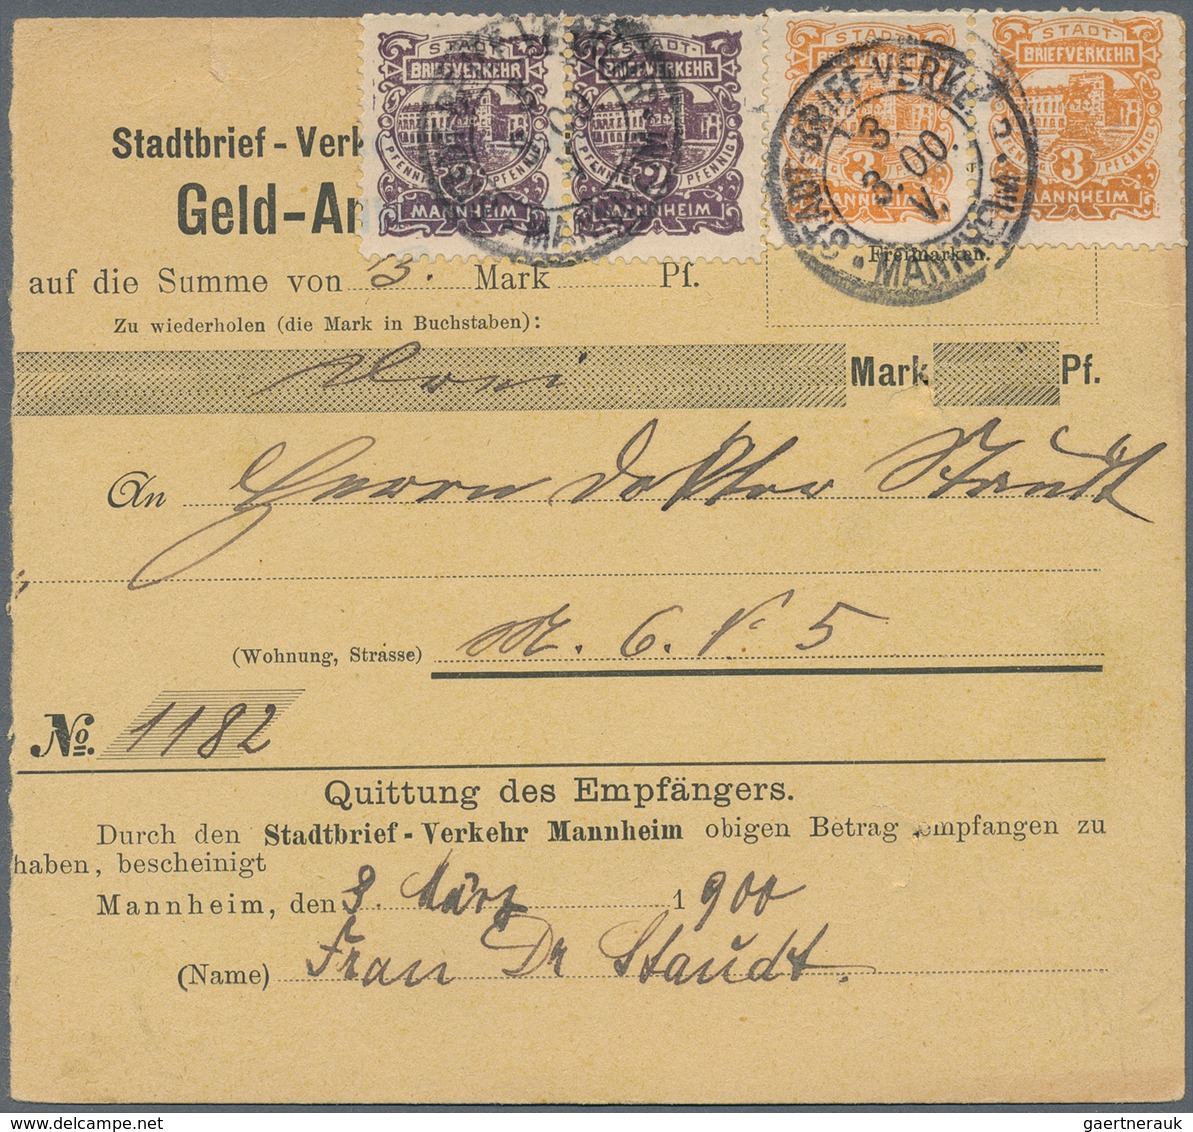 STADT- STADT- STADT- STADT-
BRIEFVERKEHR BRIEFVERKEHR BRIEFVERKEHR BRIEFVERKEHR
PFENNIG 2 PFENNIG PFENNIG 2 PFENNIG 3 PFENNIG 3 PFENNIG
MANNHEIM MANNHEIM MANNHEIM MANNHEIM
STADT-BRIEF-VERKEHR • MANNHEIM •
3 3
00.
V.
Stadtbrief-Verk
Geld-An
Freimarken.
auf die Summe von 3. Mark Pf.
Zu wiederholen (die Mark in Buchstaben):
Drei Mark Pf.
An Herrn Doktor Staudt
(Wohnung, Strasse) M. 6. N. 5
No. 1182
Quittung des Empfängers.
Durch den Stadtbrief-Verkehr Mannheim obigen Betrag empfangen zu
haben, bescheinigt
Mannheim, den 3. März 1900
(Name) Frau Dr Staudt.
gaertnerauk